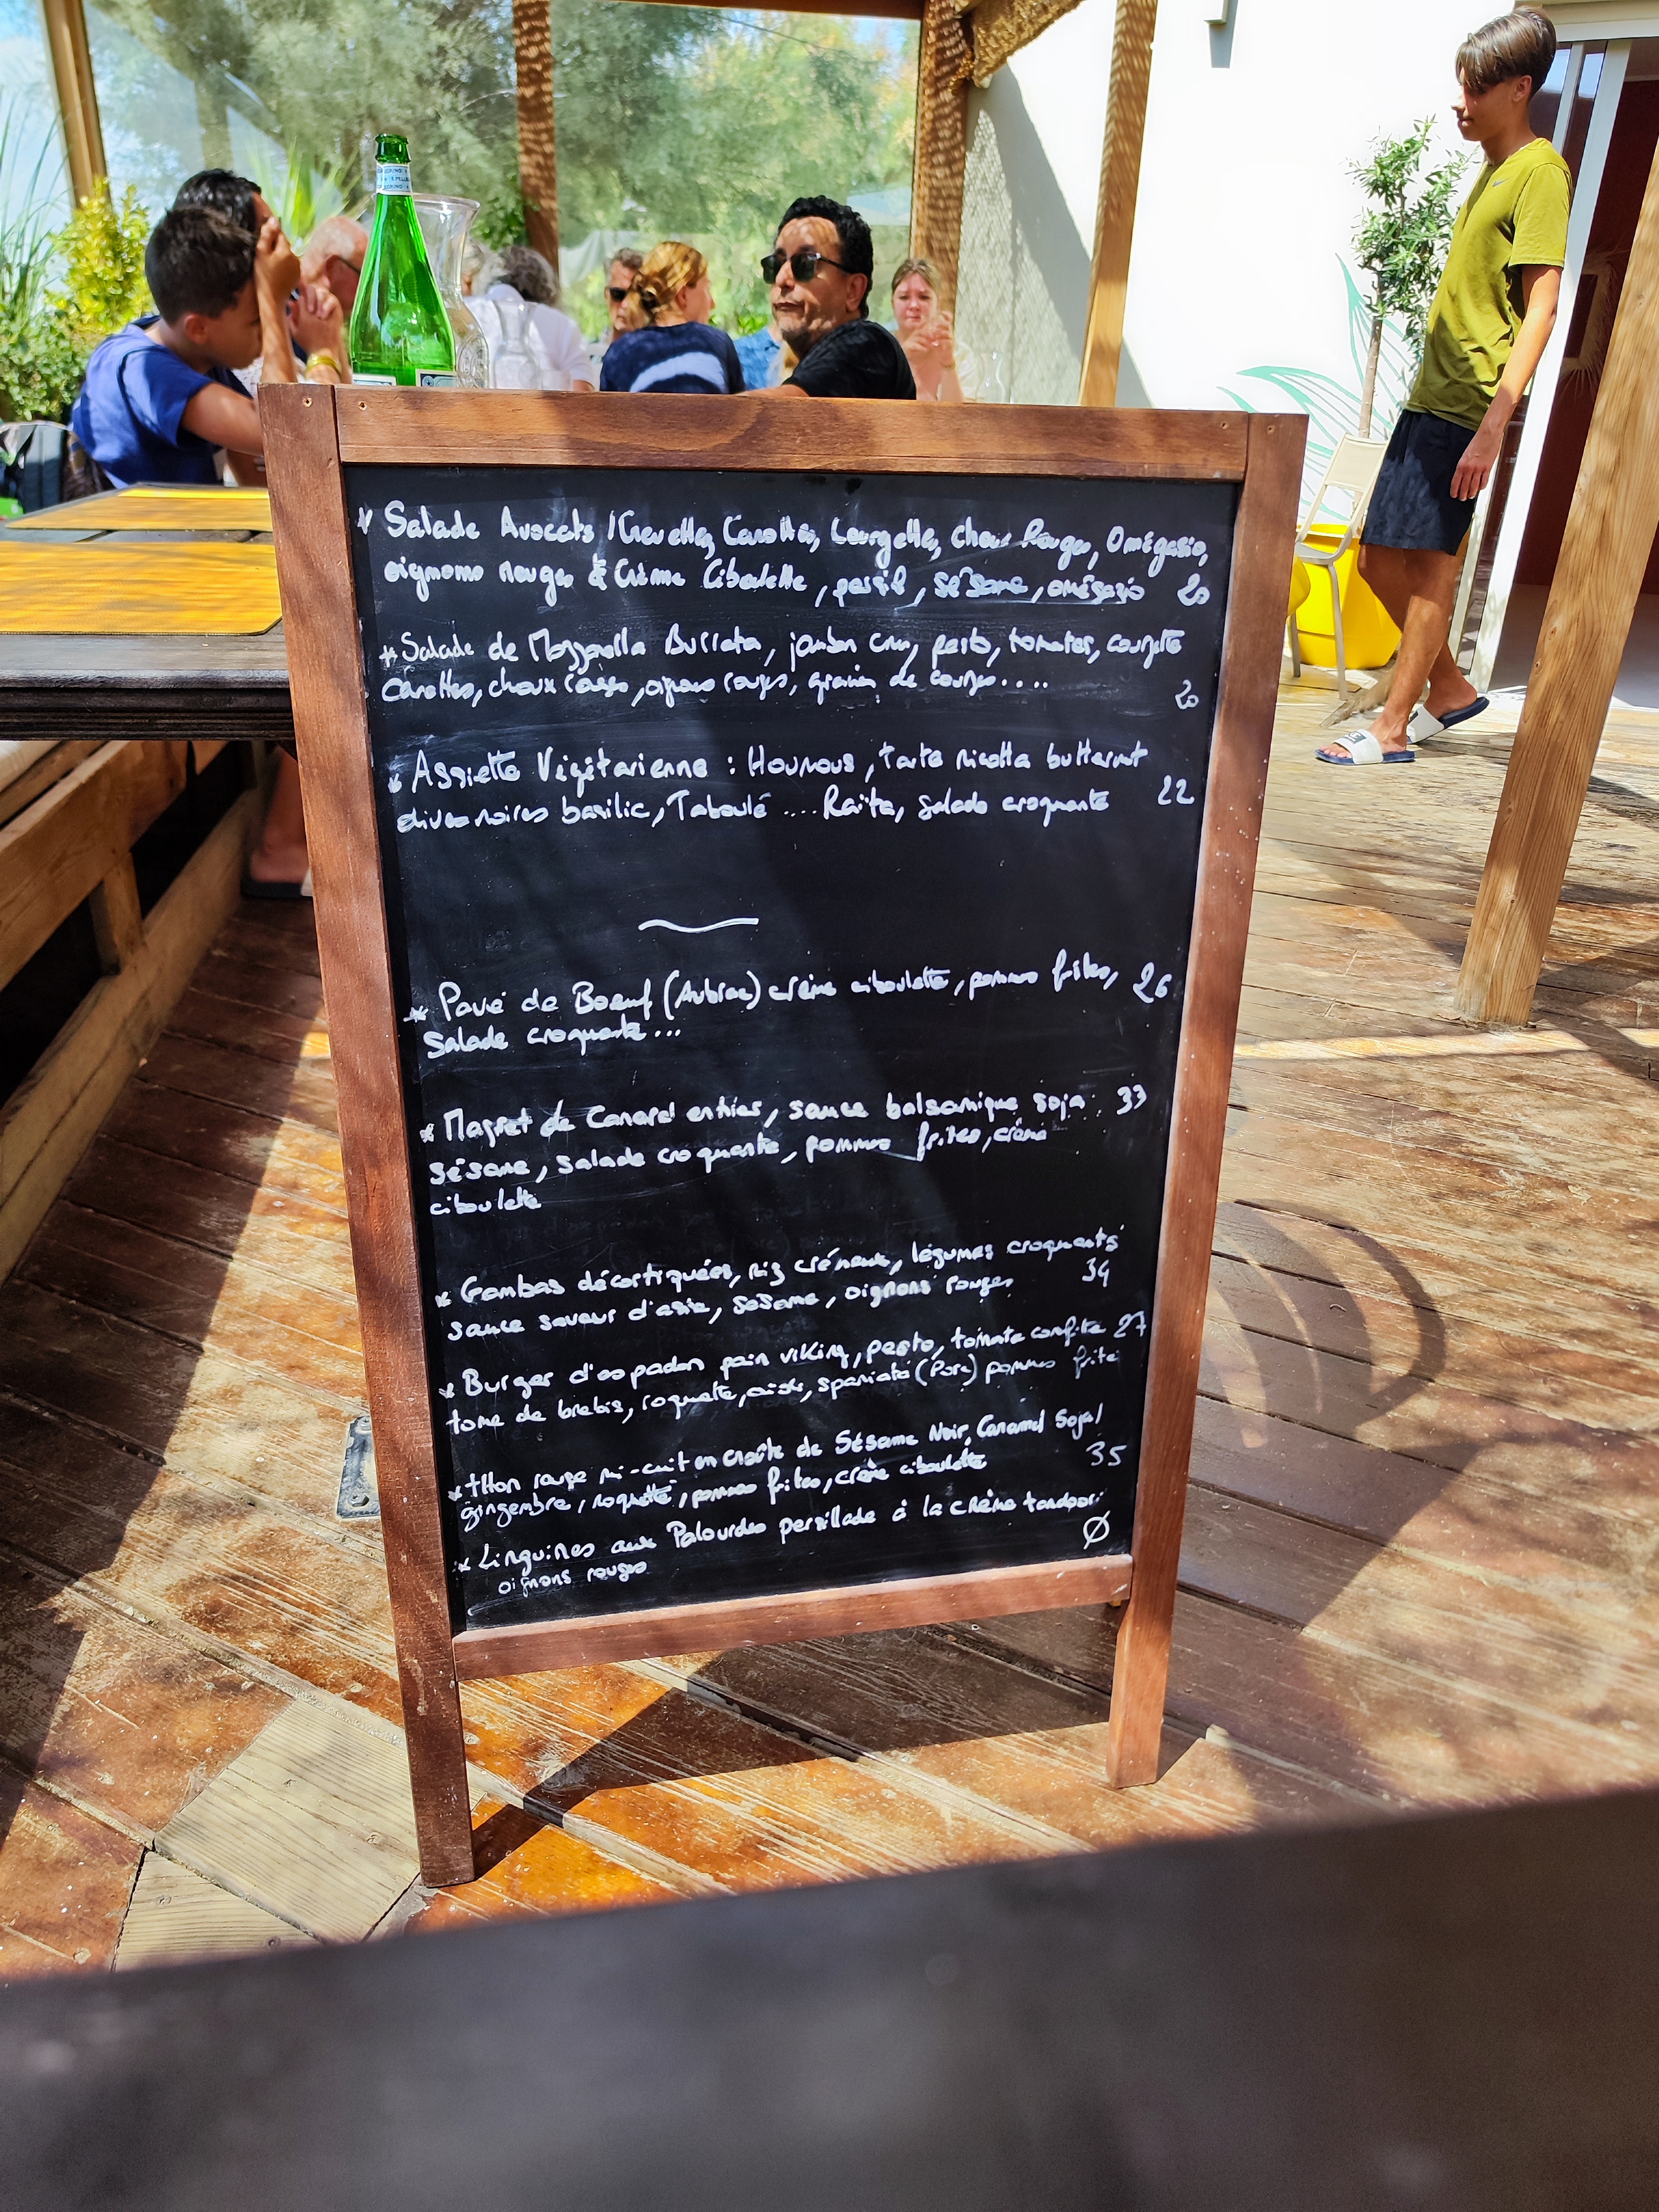 * Salade Avocats / Crevettes, Carottes, Courgettes, choux Rouges, Omégasio,
oignons rouges & Crème Ciboulette, persil, sésame, omégasio 20
* Salade de Mozzarella Burrata, jambon cru, pesto, tomates, courgette
Carottes, choux rouges, oignons rouges, graines de courges.... 20
* Assiette Végétarienne : Houmous, Tarte ricotta butternut
olives noires basilic, Taboulé .... Raïta, Salade croquante 22
* Pavé de Boeuf (Aubrac) crème ciboulette, pommes frites, 26
Salade croquante ...
* Magret de Canard entier, sauce balsamique soja 33
sésame, salade croquante, pommes frites, crème
ciboulette
* Gambas décortiquées, riz crémeux, légumes croquants
sauce saveur d'asie, sésame, oignons rouges 34
* Burger d'espadon pain viking, pesto, tomate confite 27
tome de brebis, roquette, spaniata (Porc) pommes frite
* tHon rouge mi-cuit en croûte de Sésame Noir, Caramel Soja/
gingembre, roquette, pommes frites, crème ciboulette 35
* Linguines aux Palourdes persillade à la crème tandoori
oignons rouges Ø